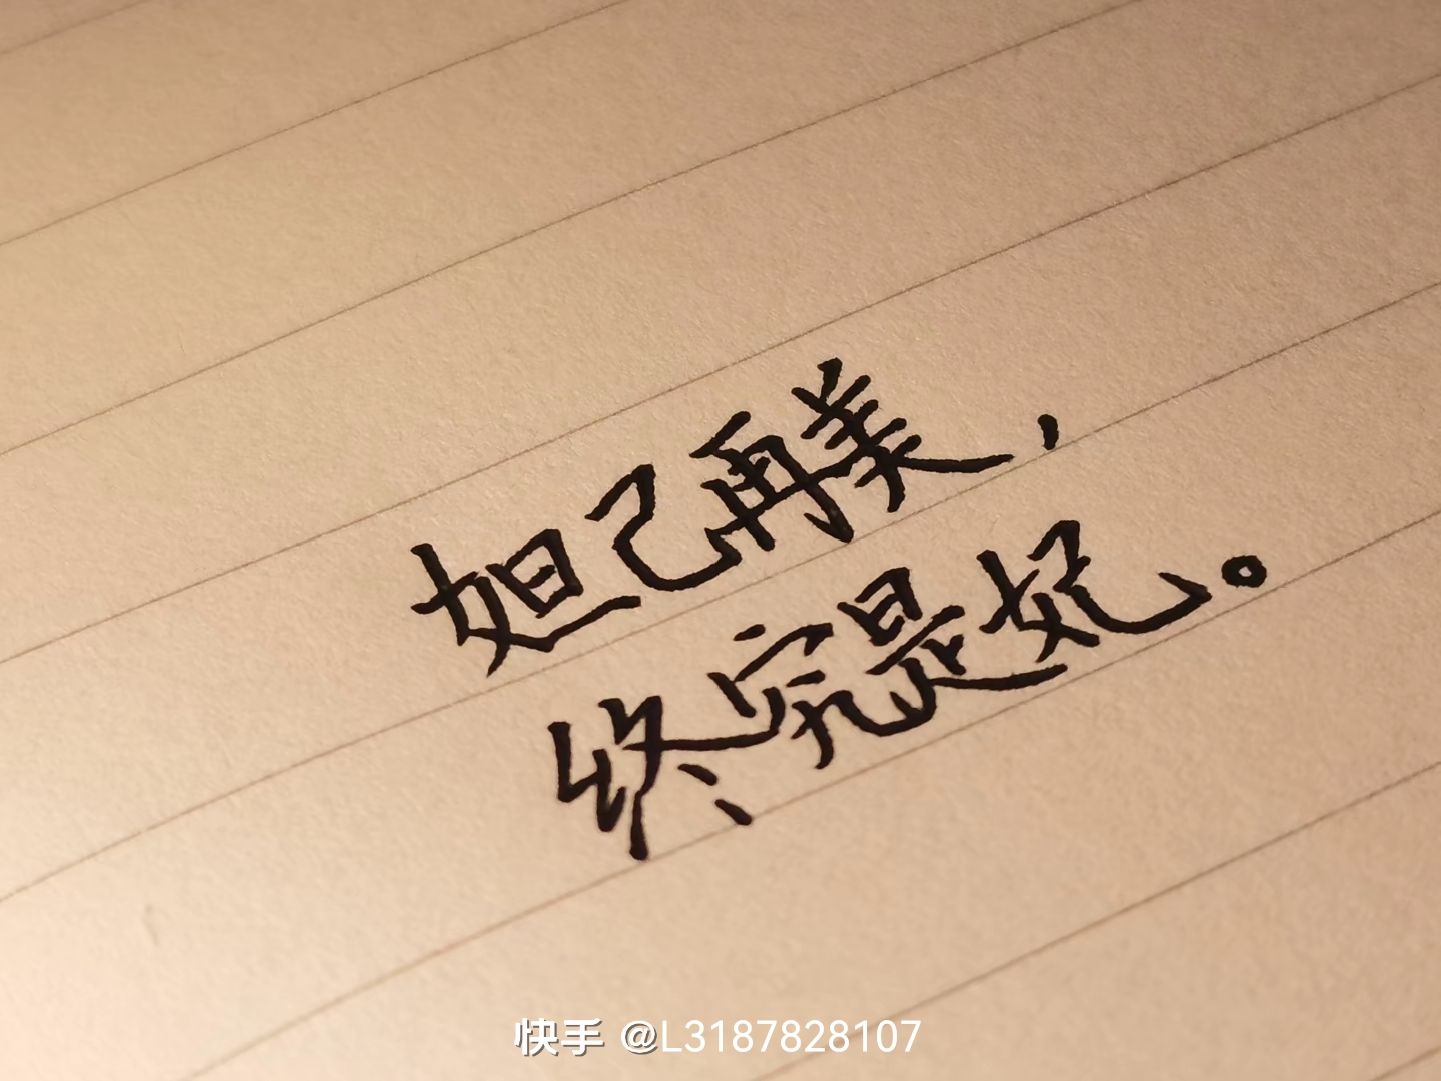 妲己再美，
终究是妃。
快手 @L3187828107